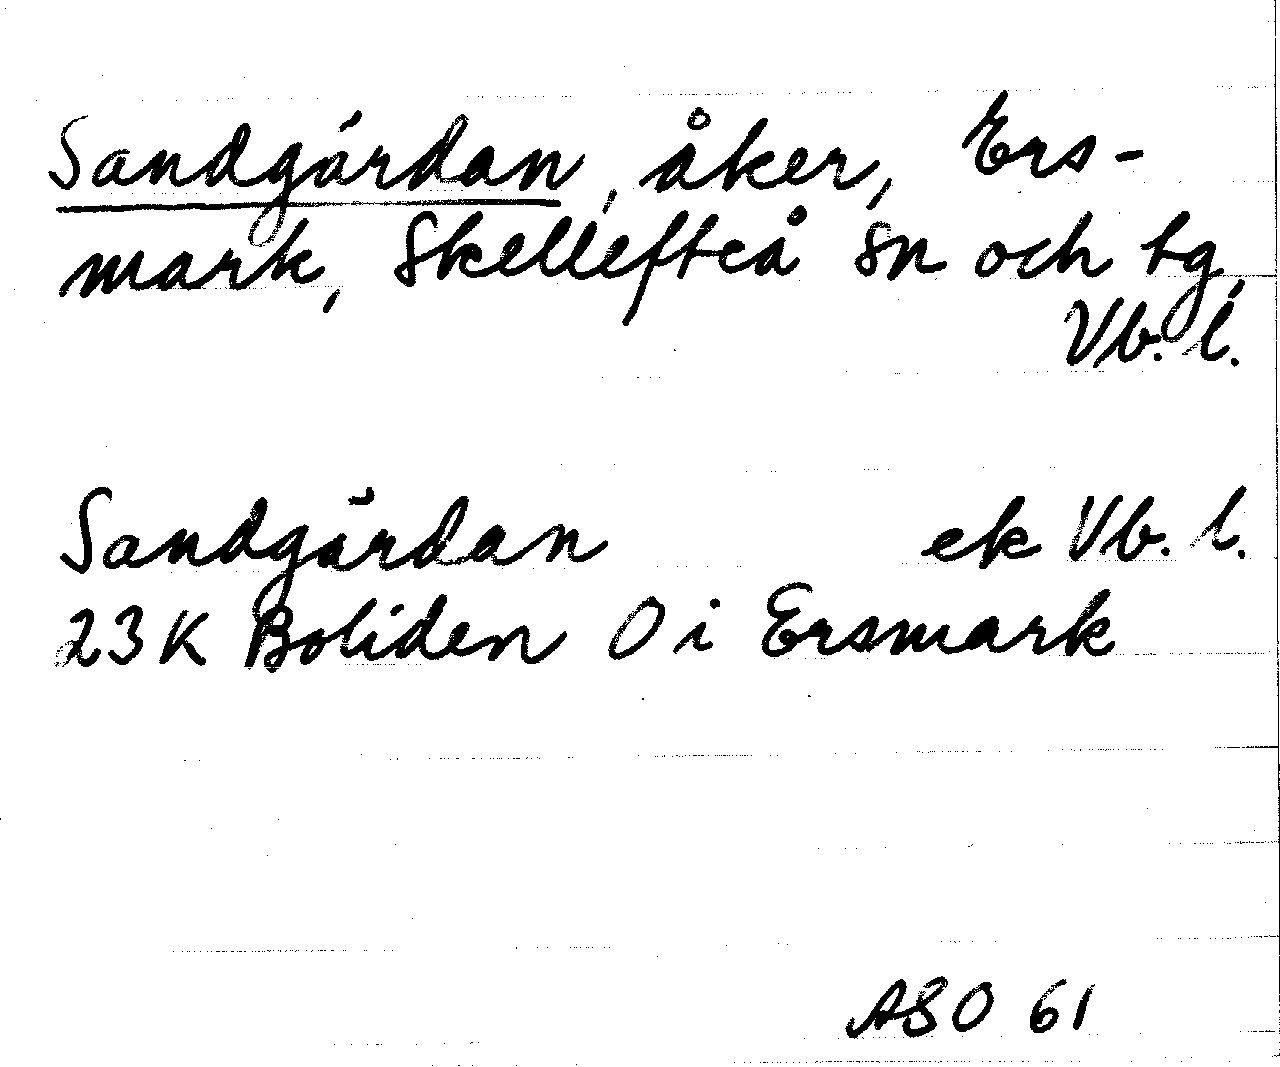 Sandgärdan, åker, Ers-
mark, Skellefteå sn och tg,
Vb. l.
Sandgärdan ek Vb. l.
23K Boliden O i Ersmark
ASO 61